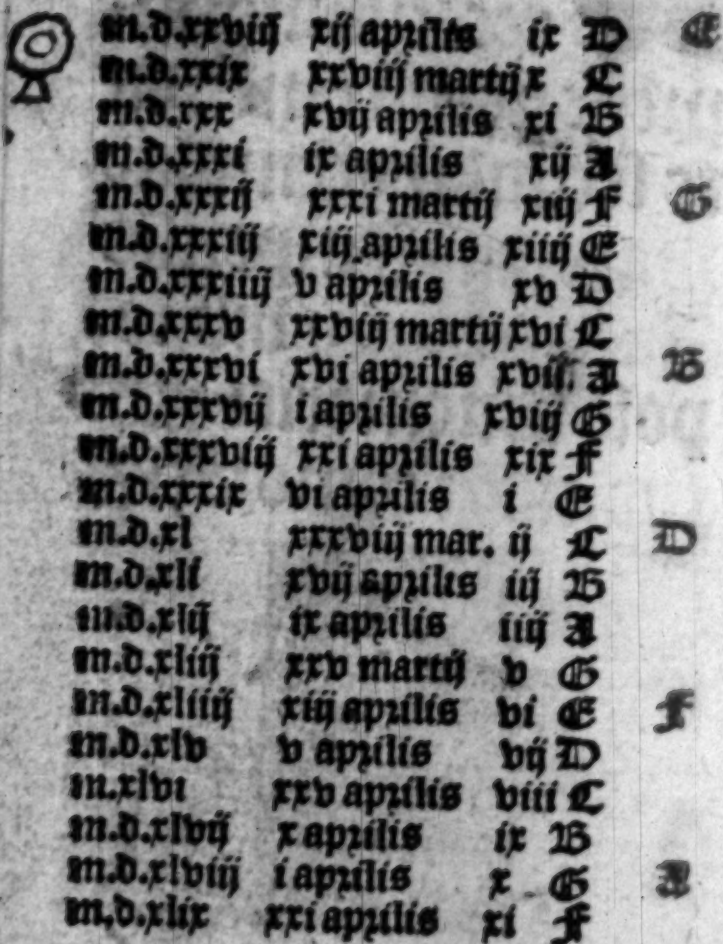 m.d.xxviij xij aprilis ix D E
m.d.xxix xxviij martij x C
m.d.xxx xvij aprilis xi B
m.d.xxxi ix aprilis xij A
m.d.xxxij xxxi martij xiij F G
m.d.xxxiij xiij aprilis xiiij E
m.d.xxxiiij v aprilis xv D
m.d.xxxv xxviij martij xvi C
m.d.xxxvi xvi aprilis xvij. A B
m.d.xxxvij i aprilis xviij G
m.d.xxxviij xxi aprilis xix F
m.d.xxxix vi aprilis i E
m.d.xl xxxviij mar. ij C D
m.d.xli xvij aprilis iij B
m.d.xlij ix aprilis iiij A
m.d.xliij xxv martij v G
m.d.xliiij xiij aprilis vi E F
m.d.xlv v aprilis vij D
m.xlvi xxv aprilis viii C
m.d.xlvij x aprilis ix B
m.d.xlviij i aprilis x G A
m.d.xlix xxi aprilis xi F